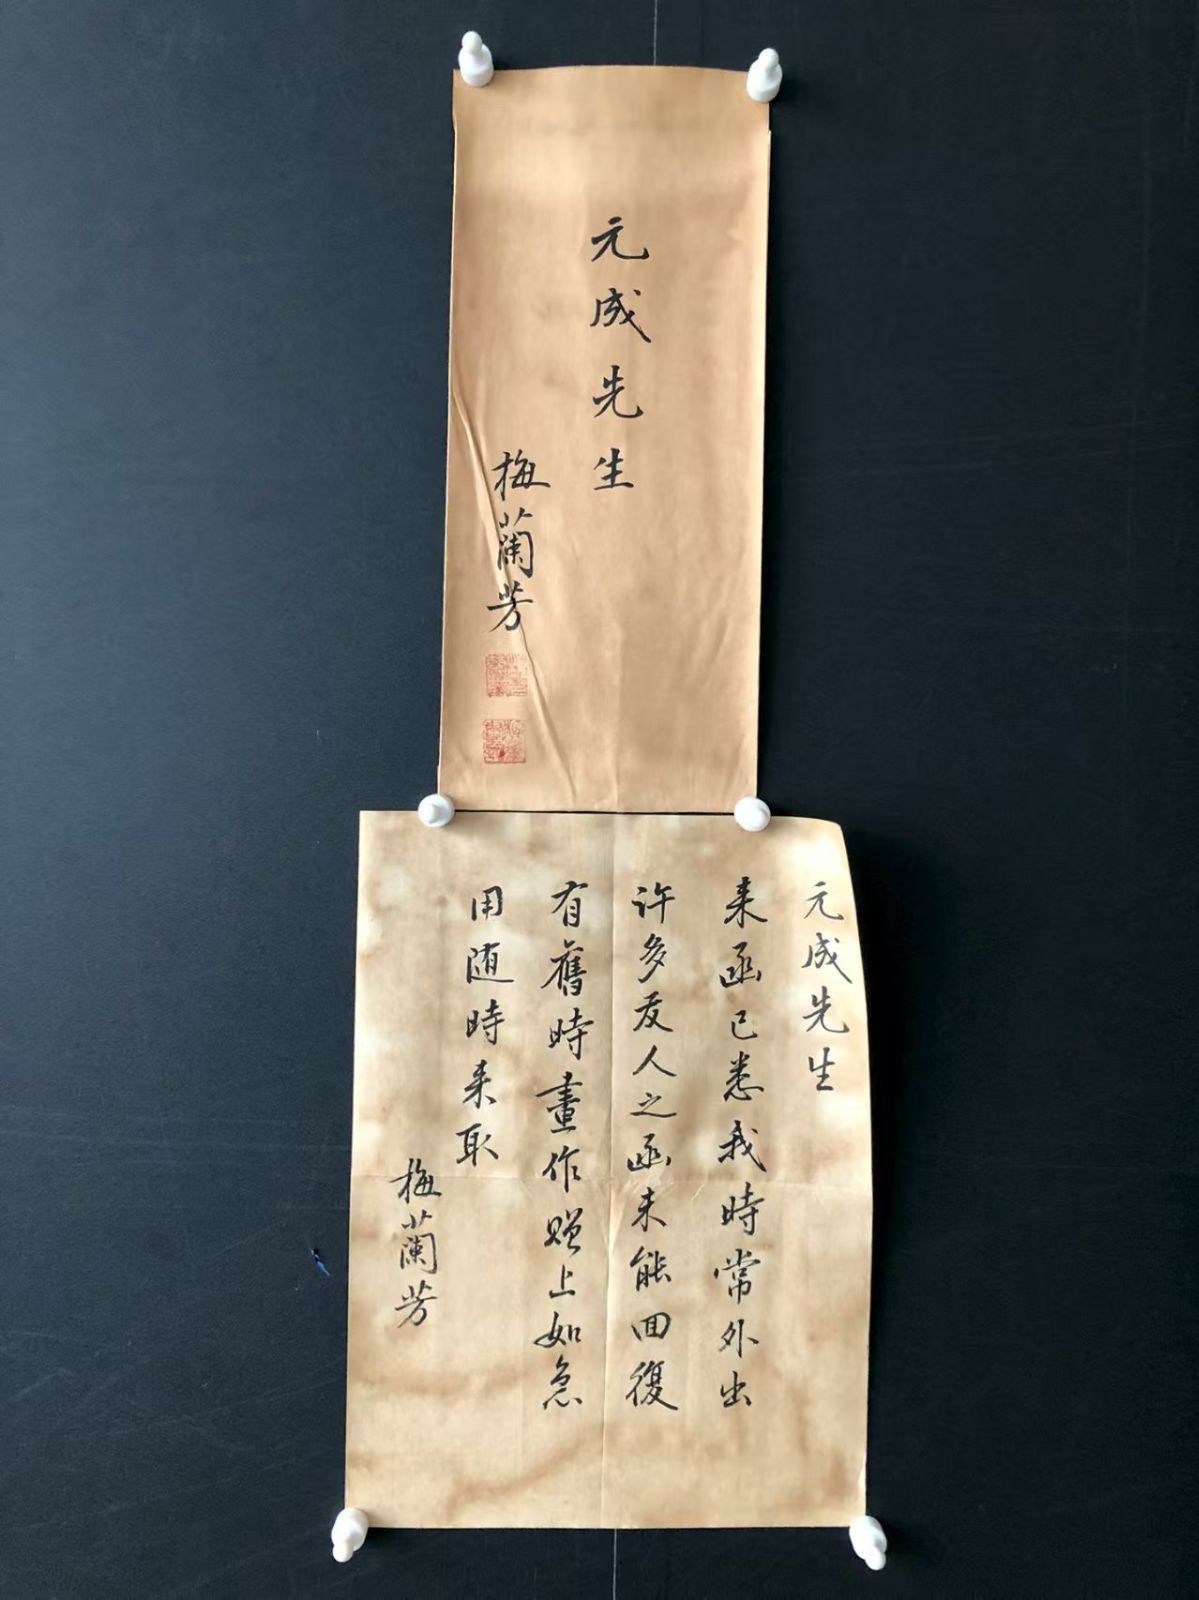 元成先生
梅蘭芳
元成先生
来函已悉我時常外出
许多友人之函未能回復
有舊時畫作赠上如急
用随時来取
梅蘭芳